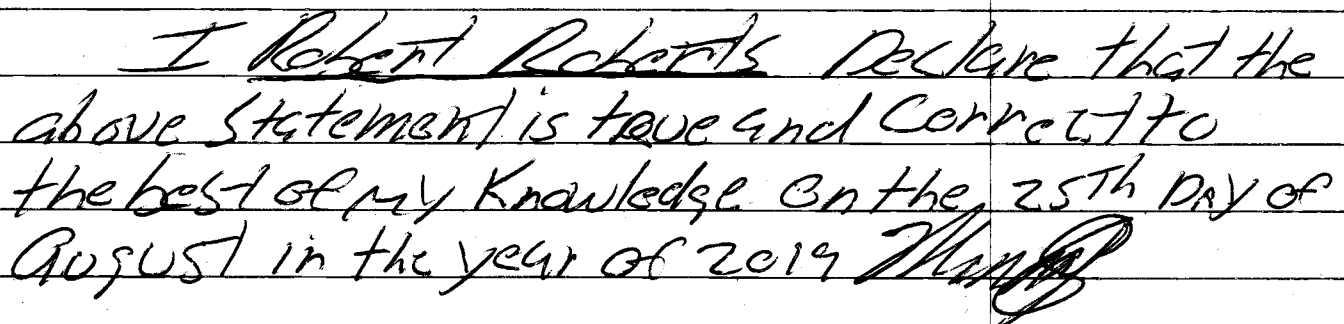 I Robert Roberts Declare that the
above statement is true and Correct to
the best of my Knowledge on the 25Th DAY of
August in the year of 2019